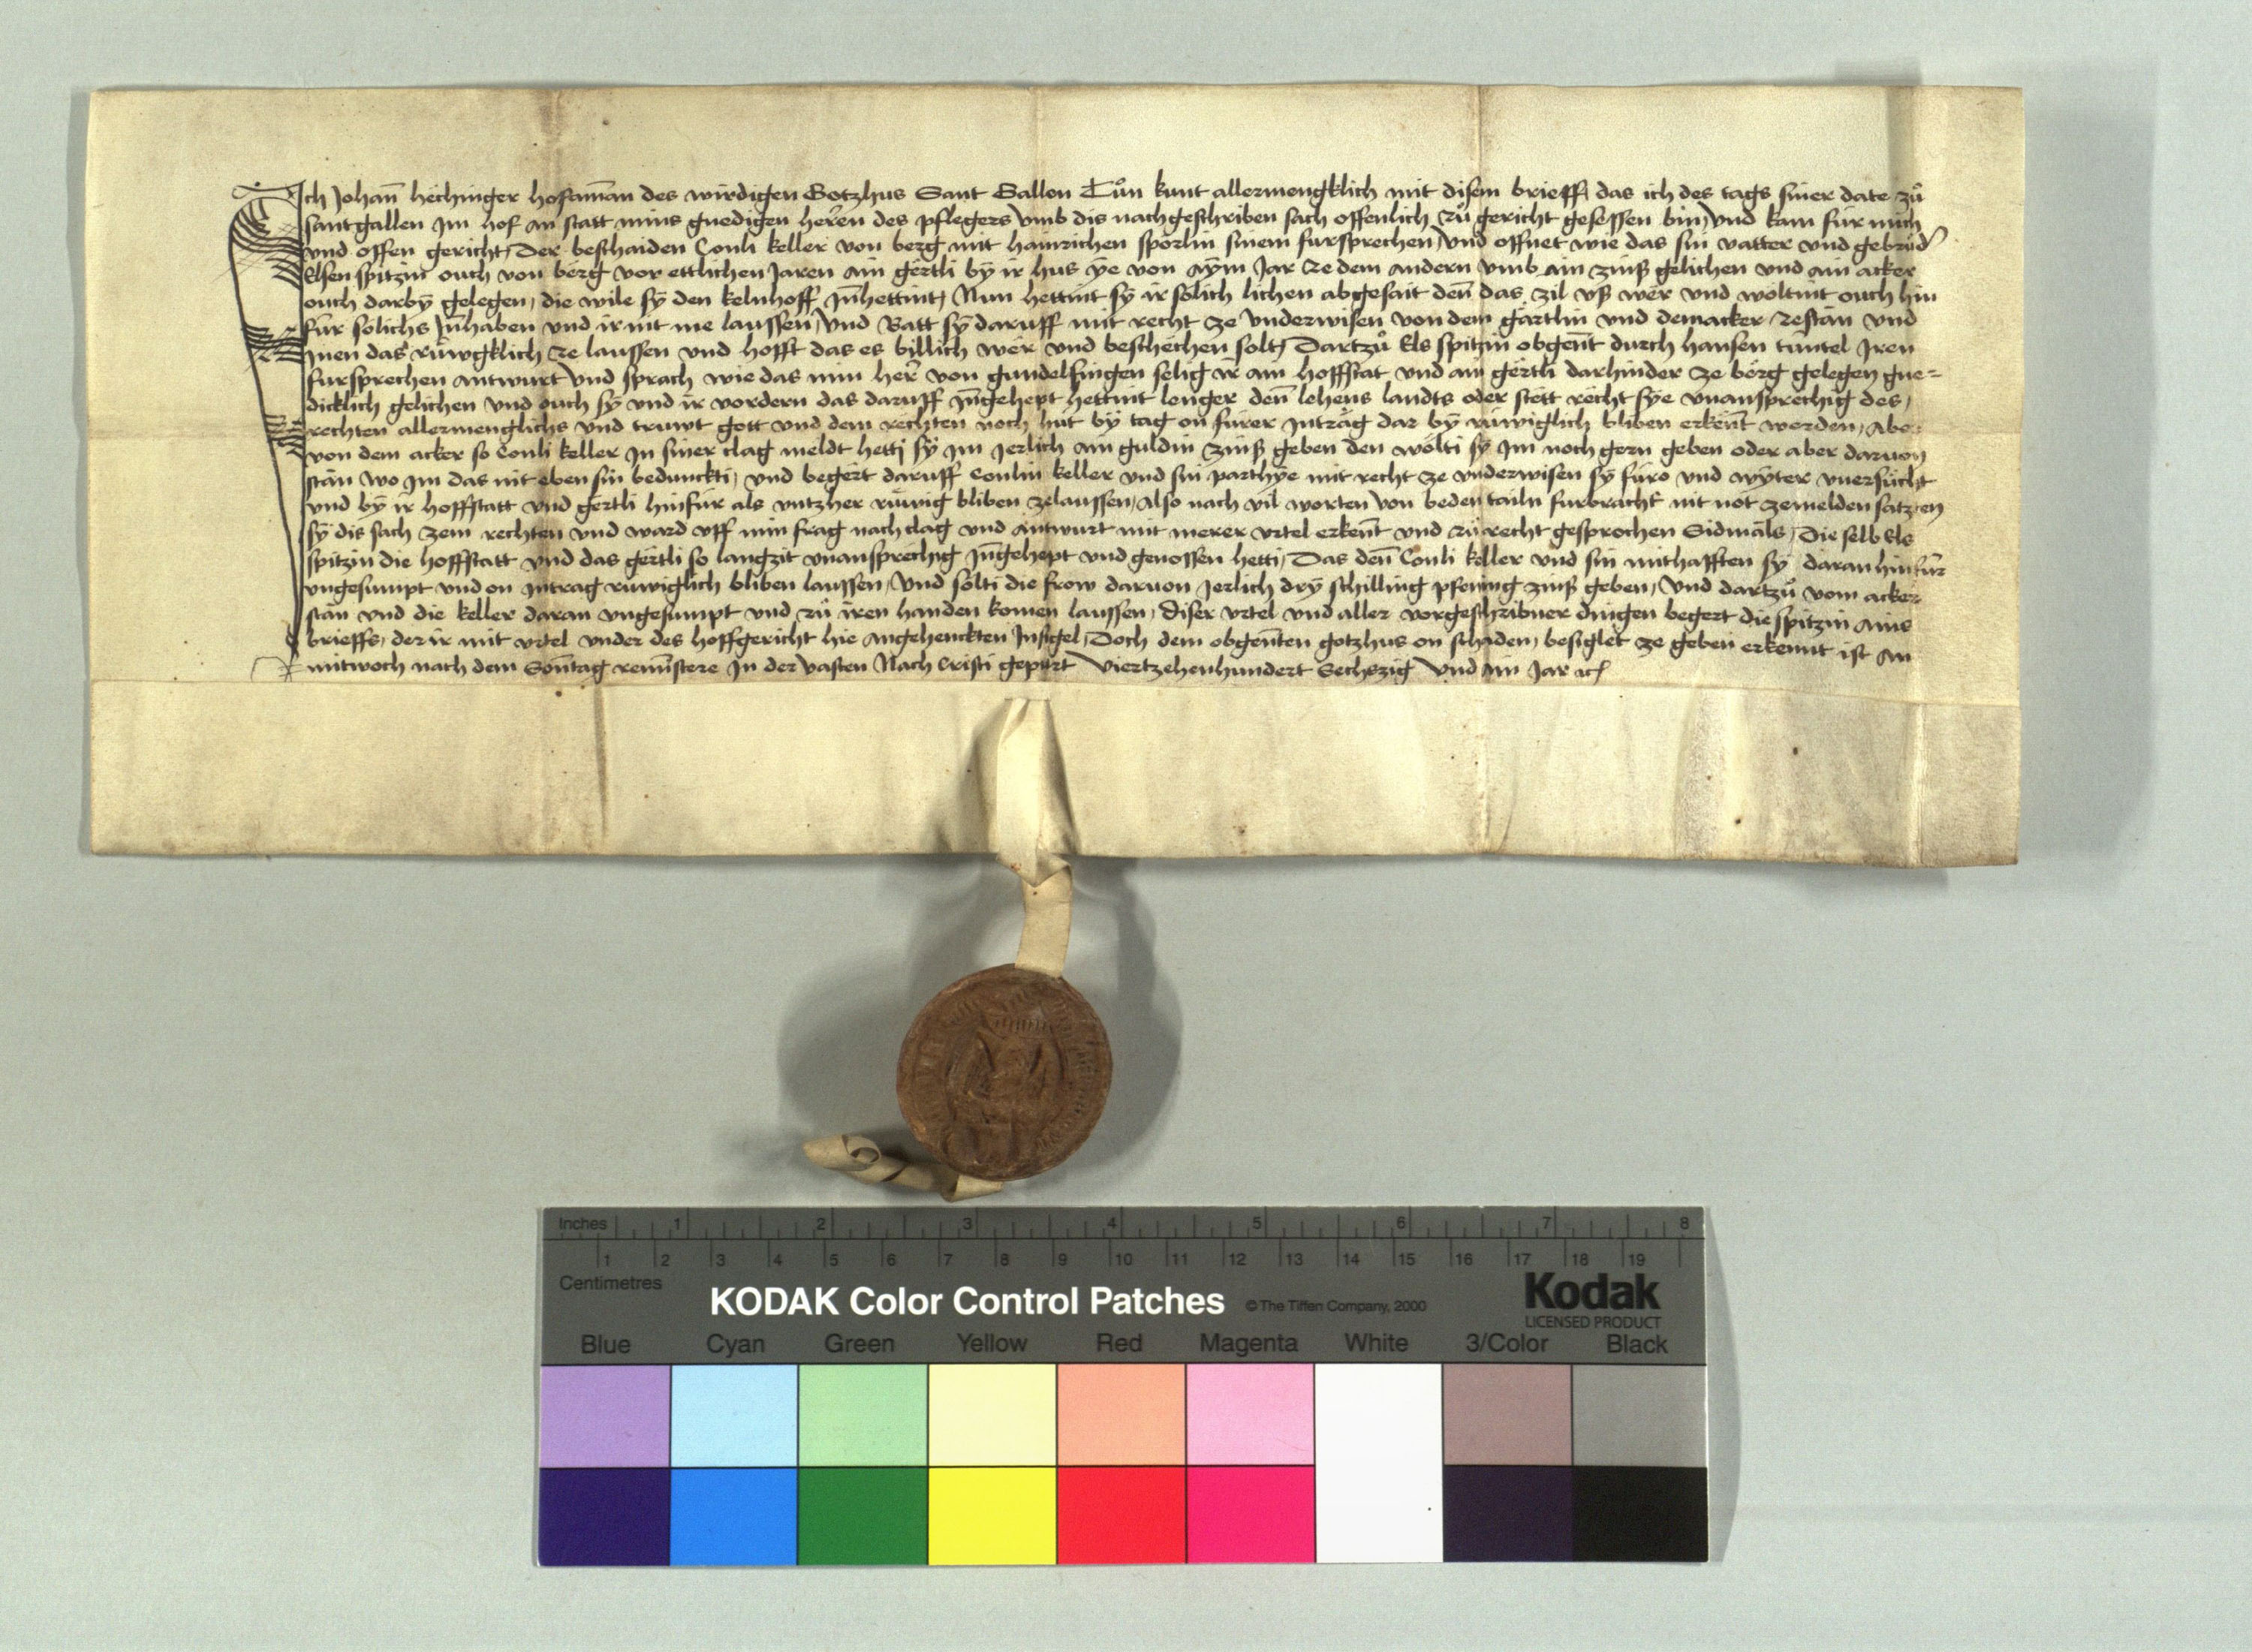 Ich Johan̄ hechinger hofam̄an des wirdigen Gotzhus Sant Gallen Tůn kunt allermengklich mit disem brieff, das ich des tags siner date zů
santgallen Jm hof an statt mins gnedigen herren des pflegers vmb dis nachgeschriben sach offenlich zů gericht gesessen bin, vnd kam für mich
vnd offen gericht, Der beschaiden Conli keller von berg mit hainrichen spörlin sinem fursprechen, vnd offnet wie das sin vatter vnd gebrůd
Elsen spitzin ouch von berg vor ettlichen Jaren ain gërtli by ir hus ye von aÿm Jar ze dem andern vmb ain zinß gelichen vnd ain acker
ouch darbÿ gelegen, die wile sÿ den kelnhoff Jn̄hettint, Nun hettint sÿ ir sölich lichen abgesait den̄ das zil vß wër vnd wöltint ouch hin
für sölichs Jn̄haben vnd ir nit me laussen, vnd Batt sÿ daruff mit recht ze vnderwisen von dem gärtlin vnd dem acker ze stan vnd
Jnen das rüwgklich ze laussen vnd hofft das es billich wër vnd beschëchen solt, Dartzů Els spitzin obgen̄t durch hansen tuntel Jren
fursprechen antwurt vnd sprach wie das min her̄ von gundelfingen selig ir ain hoffstat vnd ain gërtli darhinder ze bërg gelegen gne=
dicklich gelichen vnd ouch sÿ vnd ir vordern das daruff Jn̄gehept hettint lenger den̄ lehens landts oder stett rëcht sÿe vnansprechig des,
rechten allermenglichs vnd truwt gott vnd dem rëchten noch hüt bÿ tag on fürer Jntrag dar bÿ rüwiglich bliben erken̄t werden, Aber
von dem acker so Conli keller Jn siner clag meldt hetti sÿ Jm Jerlich ain guldin zinß geben den wölti sÿ Jm noch gern geben oder aber daruon
stän wo Jm das nit eben sin beduncktj, vnd begërt daruff Conlin keller vnd sin parthÿe mit recht ze vnderwisen sÿ füro vnd wÿter vnersücht
vnd bÿ ir hoffstatt vnd gërtli hinfür als vntzher rüwig bliben zelaussen, Also nach vil worten von beden tailn furbracht nit not zemelden satzten
sÿ dis sach zem rechten vnd ward vff min frag nach clag vnd antwurt mit merer vrtel erken̄t vnd zů recht gesprochen Sidmäls, Die selb Els
spitzin die hoffstatt vnd das gërtli so langzit vnansprechig Jn̄gehept vnd genossen hetti, Das den̄ Conli keller vnd sin mithafften sÿ daran hinfür
vngesumpt vnd on Jntrag rüwiglich bliben laussen, Vnd sölti die frow daruon Jerlich drÿ schilling pfening zinß geben, Vnd dartzů vom acker
stän vnd die keller daran vngesumpt vnd zů iren handen komen laussen, Diser vrtel vnd aller vorgeschribner dingen begert die spitzin ains
brieffs, der ir mit vrtel vnder des hoffgericht hie angehenckten Jnsigel, Doch dem obgen̄ten gotzhus on schaden, besiglet ze geben erkennt ist An
mitwoch nach dem Son̄tag remīscere Jn der vasten Nach Cristi gepurt Viertzehenhundert Sechszig Vnd ain Jar
Inches 1 2 3 4 5 6 7 8
1 2 3 4 5 6 7 8 9 10 11 12 13 14 15 16 17 18 19
Centimetres
KODAK Color Control Patches © The Tiffen Company, 2000 Kodak
LICENSED PRODUCT
Blue Cyan Green Yellow Red Magenta White 3/Color Black